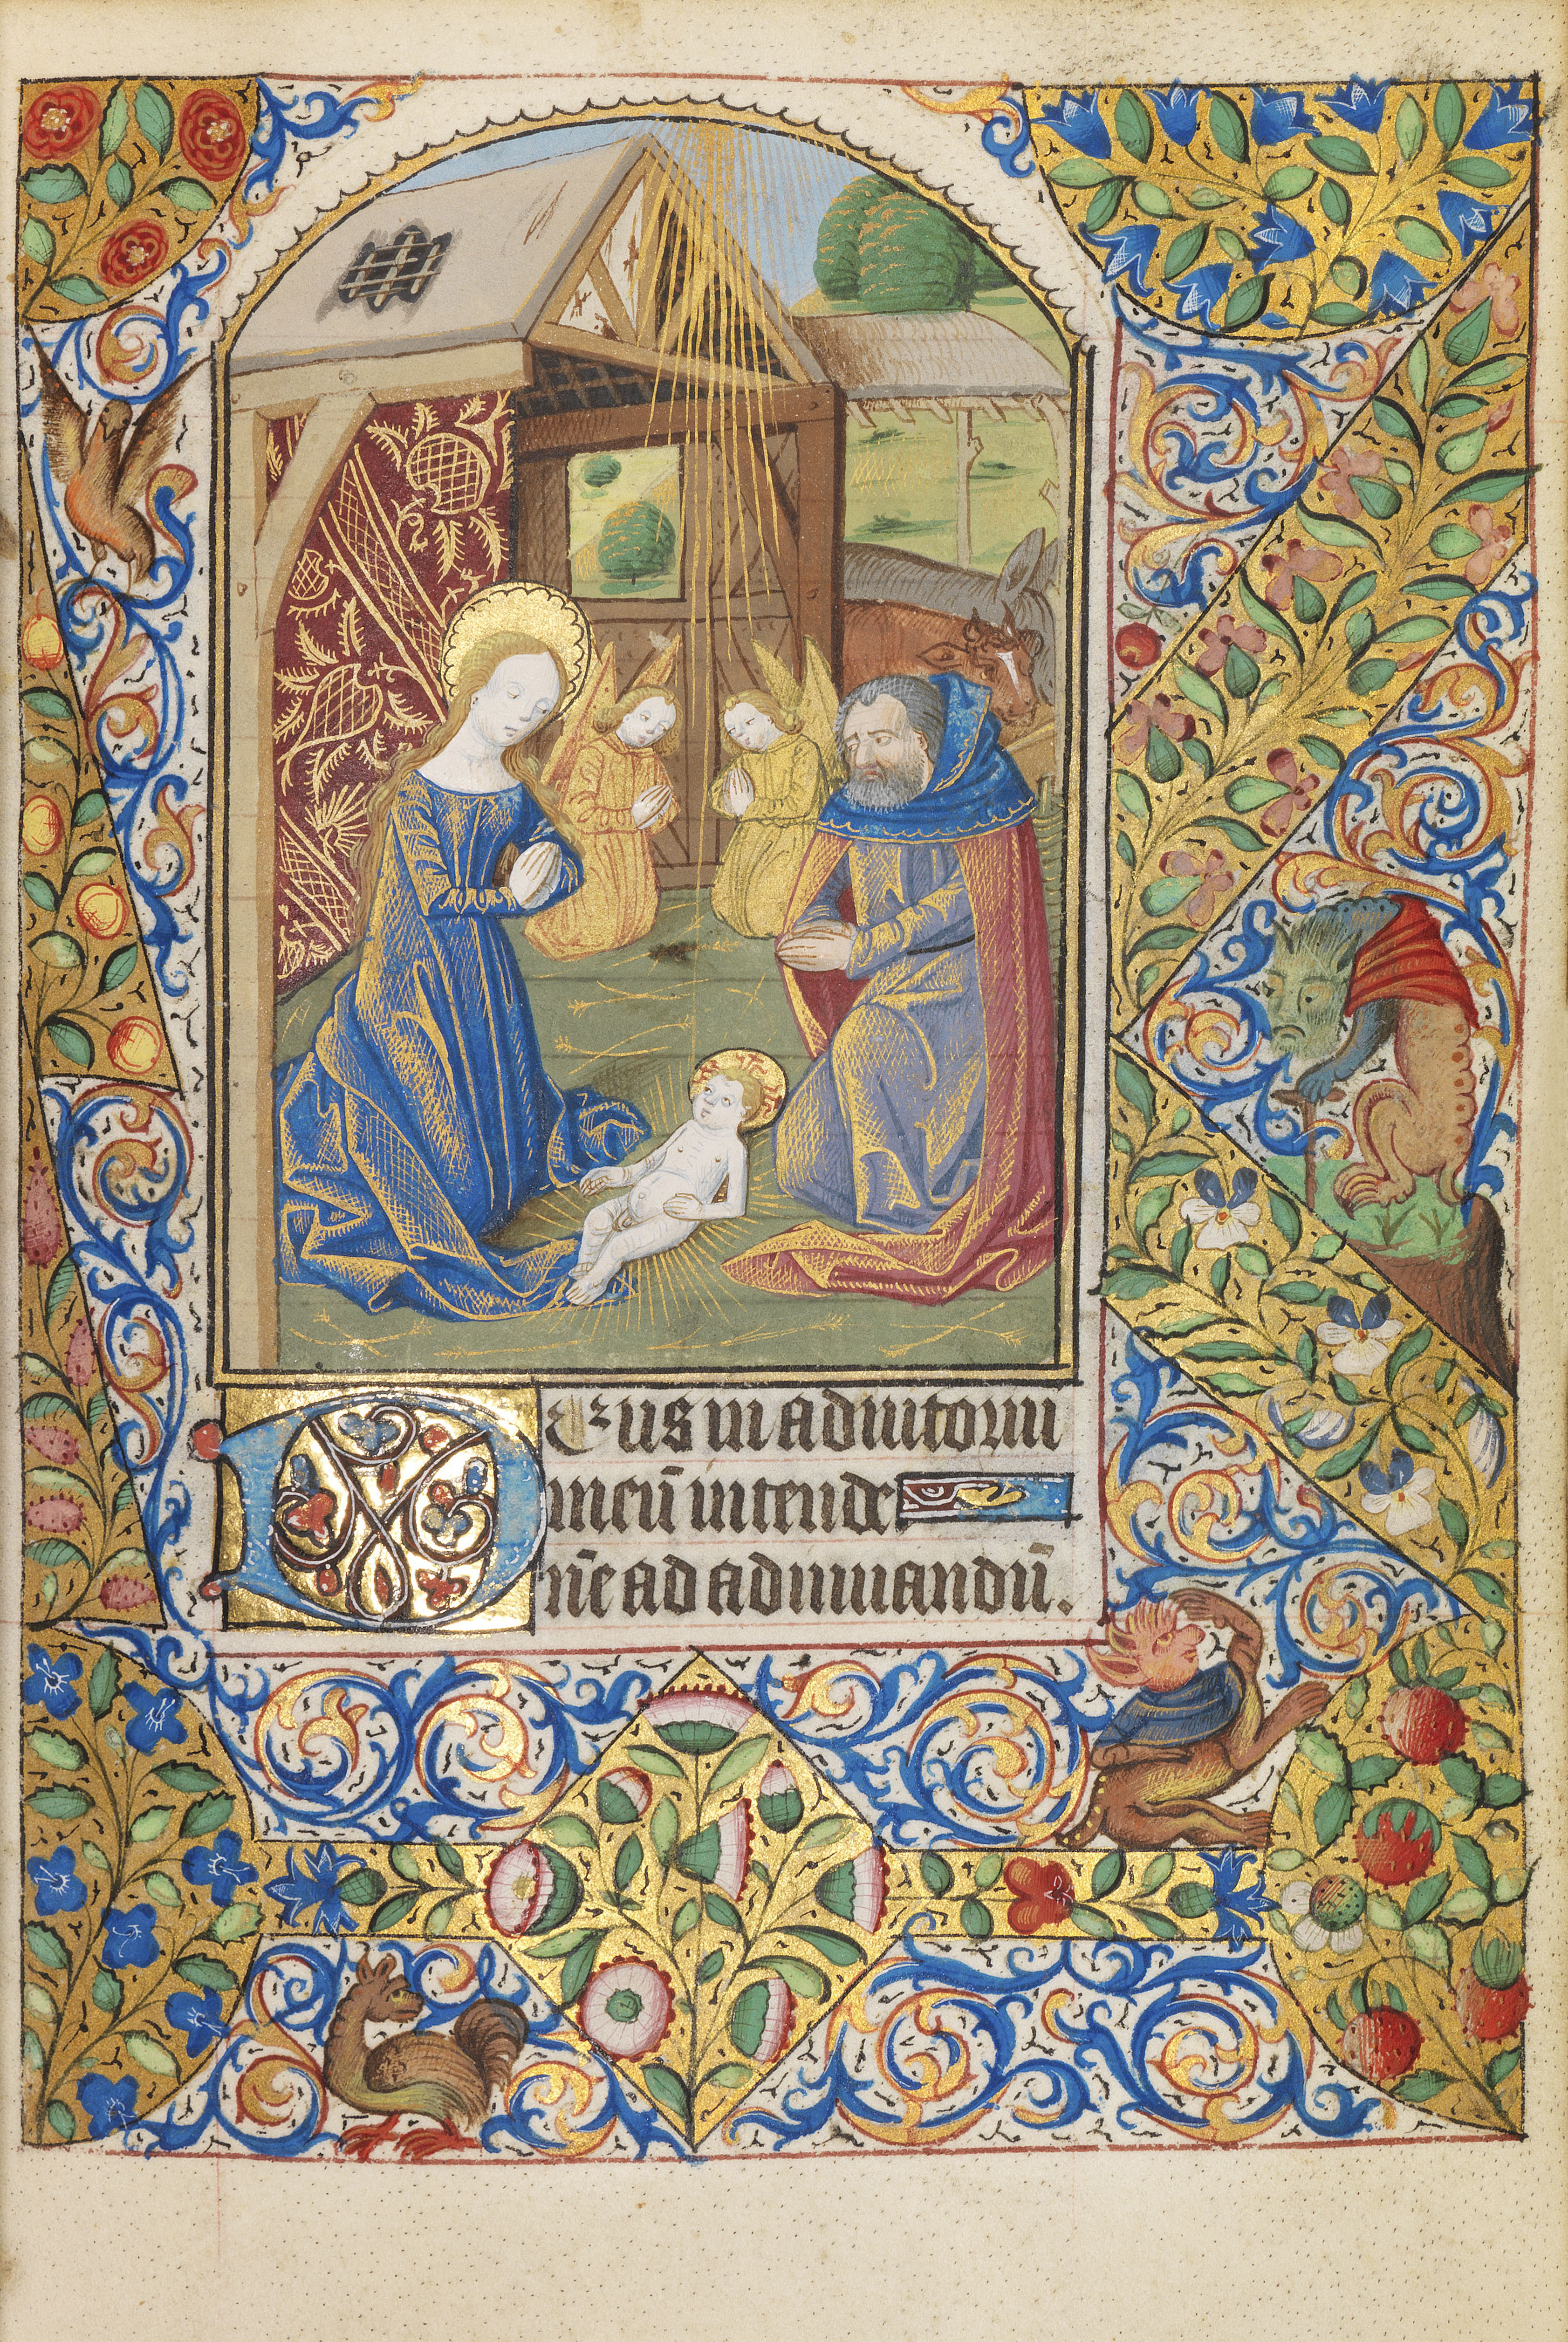 Deus in adiutoriu
meū intende
n̄e ad adiuuandū.